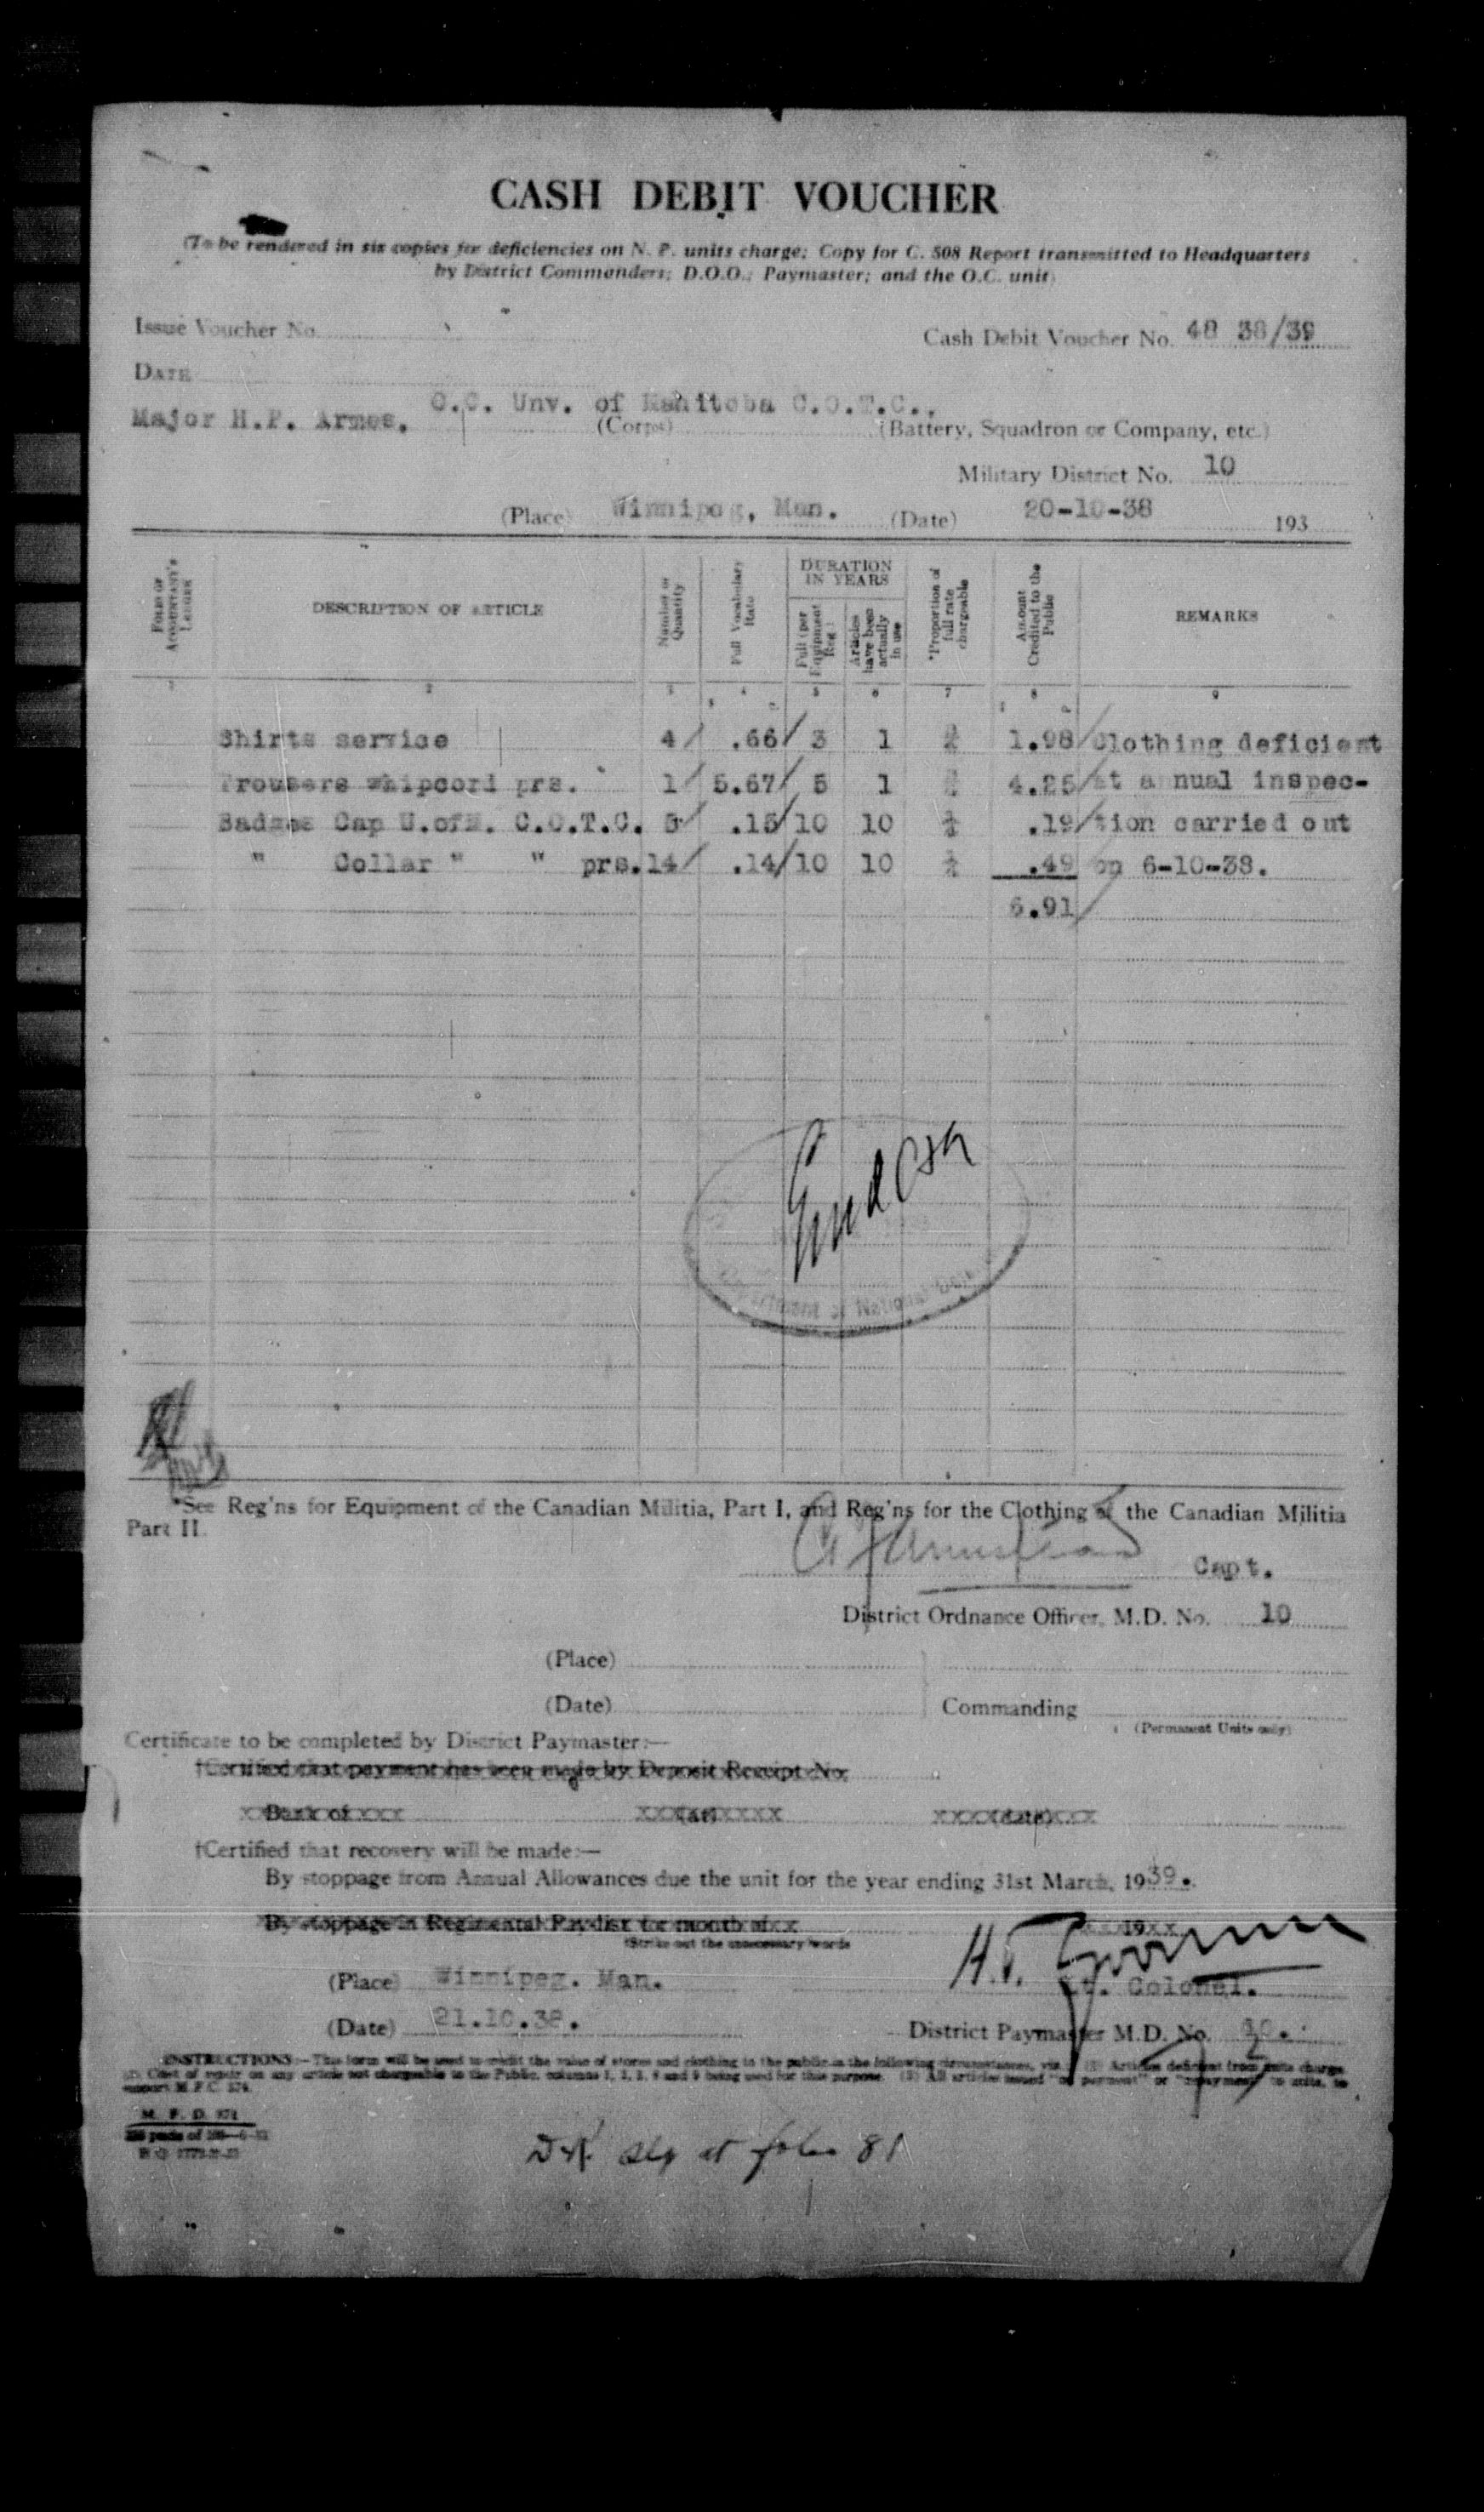 CASH DEBIT VOUCHER
(To be rendered in six copies for deficiencies on N. P. units charge; Copy for C. 508 Report transmitted to Headquarters
by District Commanders; D.O.O.; Paymaster; and the O.C. unit)
Issue Voucher No.
Cash Debit Voucher No. 48 38/39
DATE
Major H.P. Armes, O.C. Unv. of Manitoba C.O.T.C.,
(Corps) (Battery, Squadron or Company, etc.)
Military District No. 10
(Place) Winnipeg, Man. (Date) 20-10-38 193
FOLIO OF ACCOUNTANT'S LEDGER
DESCRIPTION OF ARTICLE
Number or Quantity
Full Vocabulary Rate
DURATION IN YEARS
Full (per Equipment Reg.)
Articles have been actually in use
*Proportion of full rate chargeable
Amount Credited to the Public
REMARKS
1 2 3 4 5 6 7 8 9
Shirts service 4/ .66/ 3 1 1.98/ Clothing deficient
Trousers whipcord prs. 1/ 5.67/ 5 1 4.25/ at annual inspec-
Badges Cap U.ofM. C.O.T.C. 5/ .15/ 10 10 ¼ .19/ tion carried out
" Collar " " prs. 14/ .14/ 10 10 ¼ .49 on 6-10-38.
6.91/
Department of National
*See Reg'ns for Equipment of the Canadian Militia, Part I, and Reg'ns for the Clothing of the Canadian Militia
Part II.
Capt.
District Ordnance Officer, M.D. No. 10
(Place)
(Date) Commanding
(Permanent Units only)
Certificate to be completed by District Paymaster:—
†Certified that payment has been made by Deposit Receipt No.
xxBank of xxx xxx(at)xxxx xxxx(date)xxx
†Certified that recovery will be made:—
By stoppage from Annual Allowances due the unit for the year ending 31st March, 1939.
By stoppage in Regimental Pay-list for month of xx 19xx
†Strike out the unnecessary words
(Place) Winnipeg. Man.
Lt. Colonel.
(Date) 21.10.38.
District Paymaster M.D. No. 10.
INSTRUCTIONS:—This form will be used to credit the value of stores and clothing to the public in the following circumstances, viz.: (1) Articles deficient from units charge.
(2) Cost of repair on any article not chargeable to the Public, columns 1, 2, 3, 4 and 9 being used for this purpose. (3) All articles issued "on payment" or "repayment" to units, to
support M.F.C. 574.
at folio 81